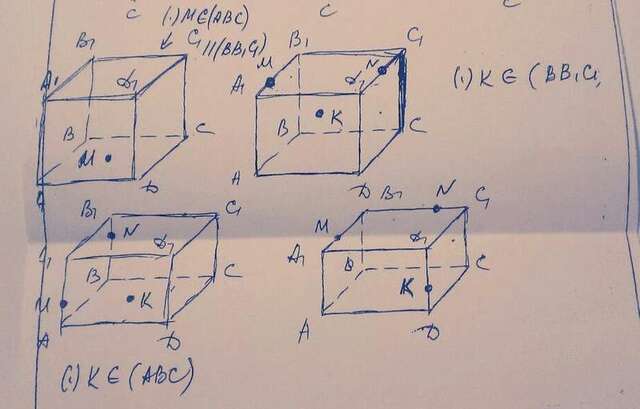 C C C
(.) M ∈ (ABC)
B₁ C₁ || (BB₁C₁)
A₁ D₁
B C
M
D
B₁ C₁
M N
A₁ D₁
B K C
A D
(.) K ∈ (BB₁C₁
B₁ C₁
N D₁
B C
M K
A D
(.) K ∈ (ABC)
B₁ N C₁
M
A₁ D₁
C
K
A D